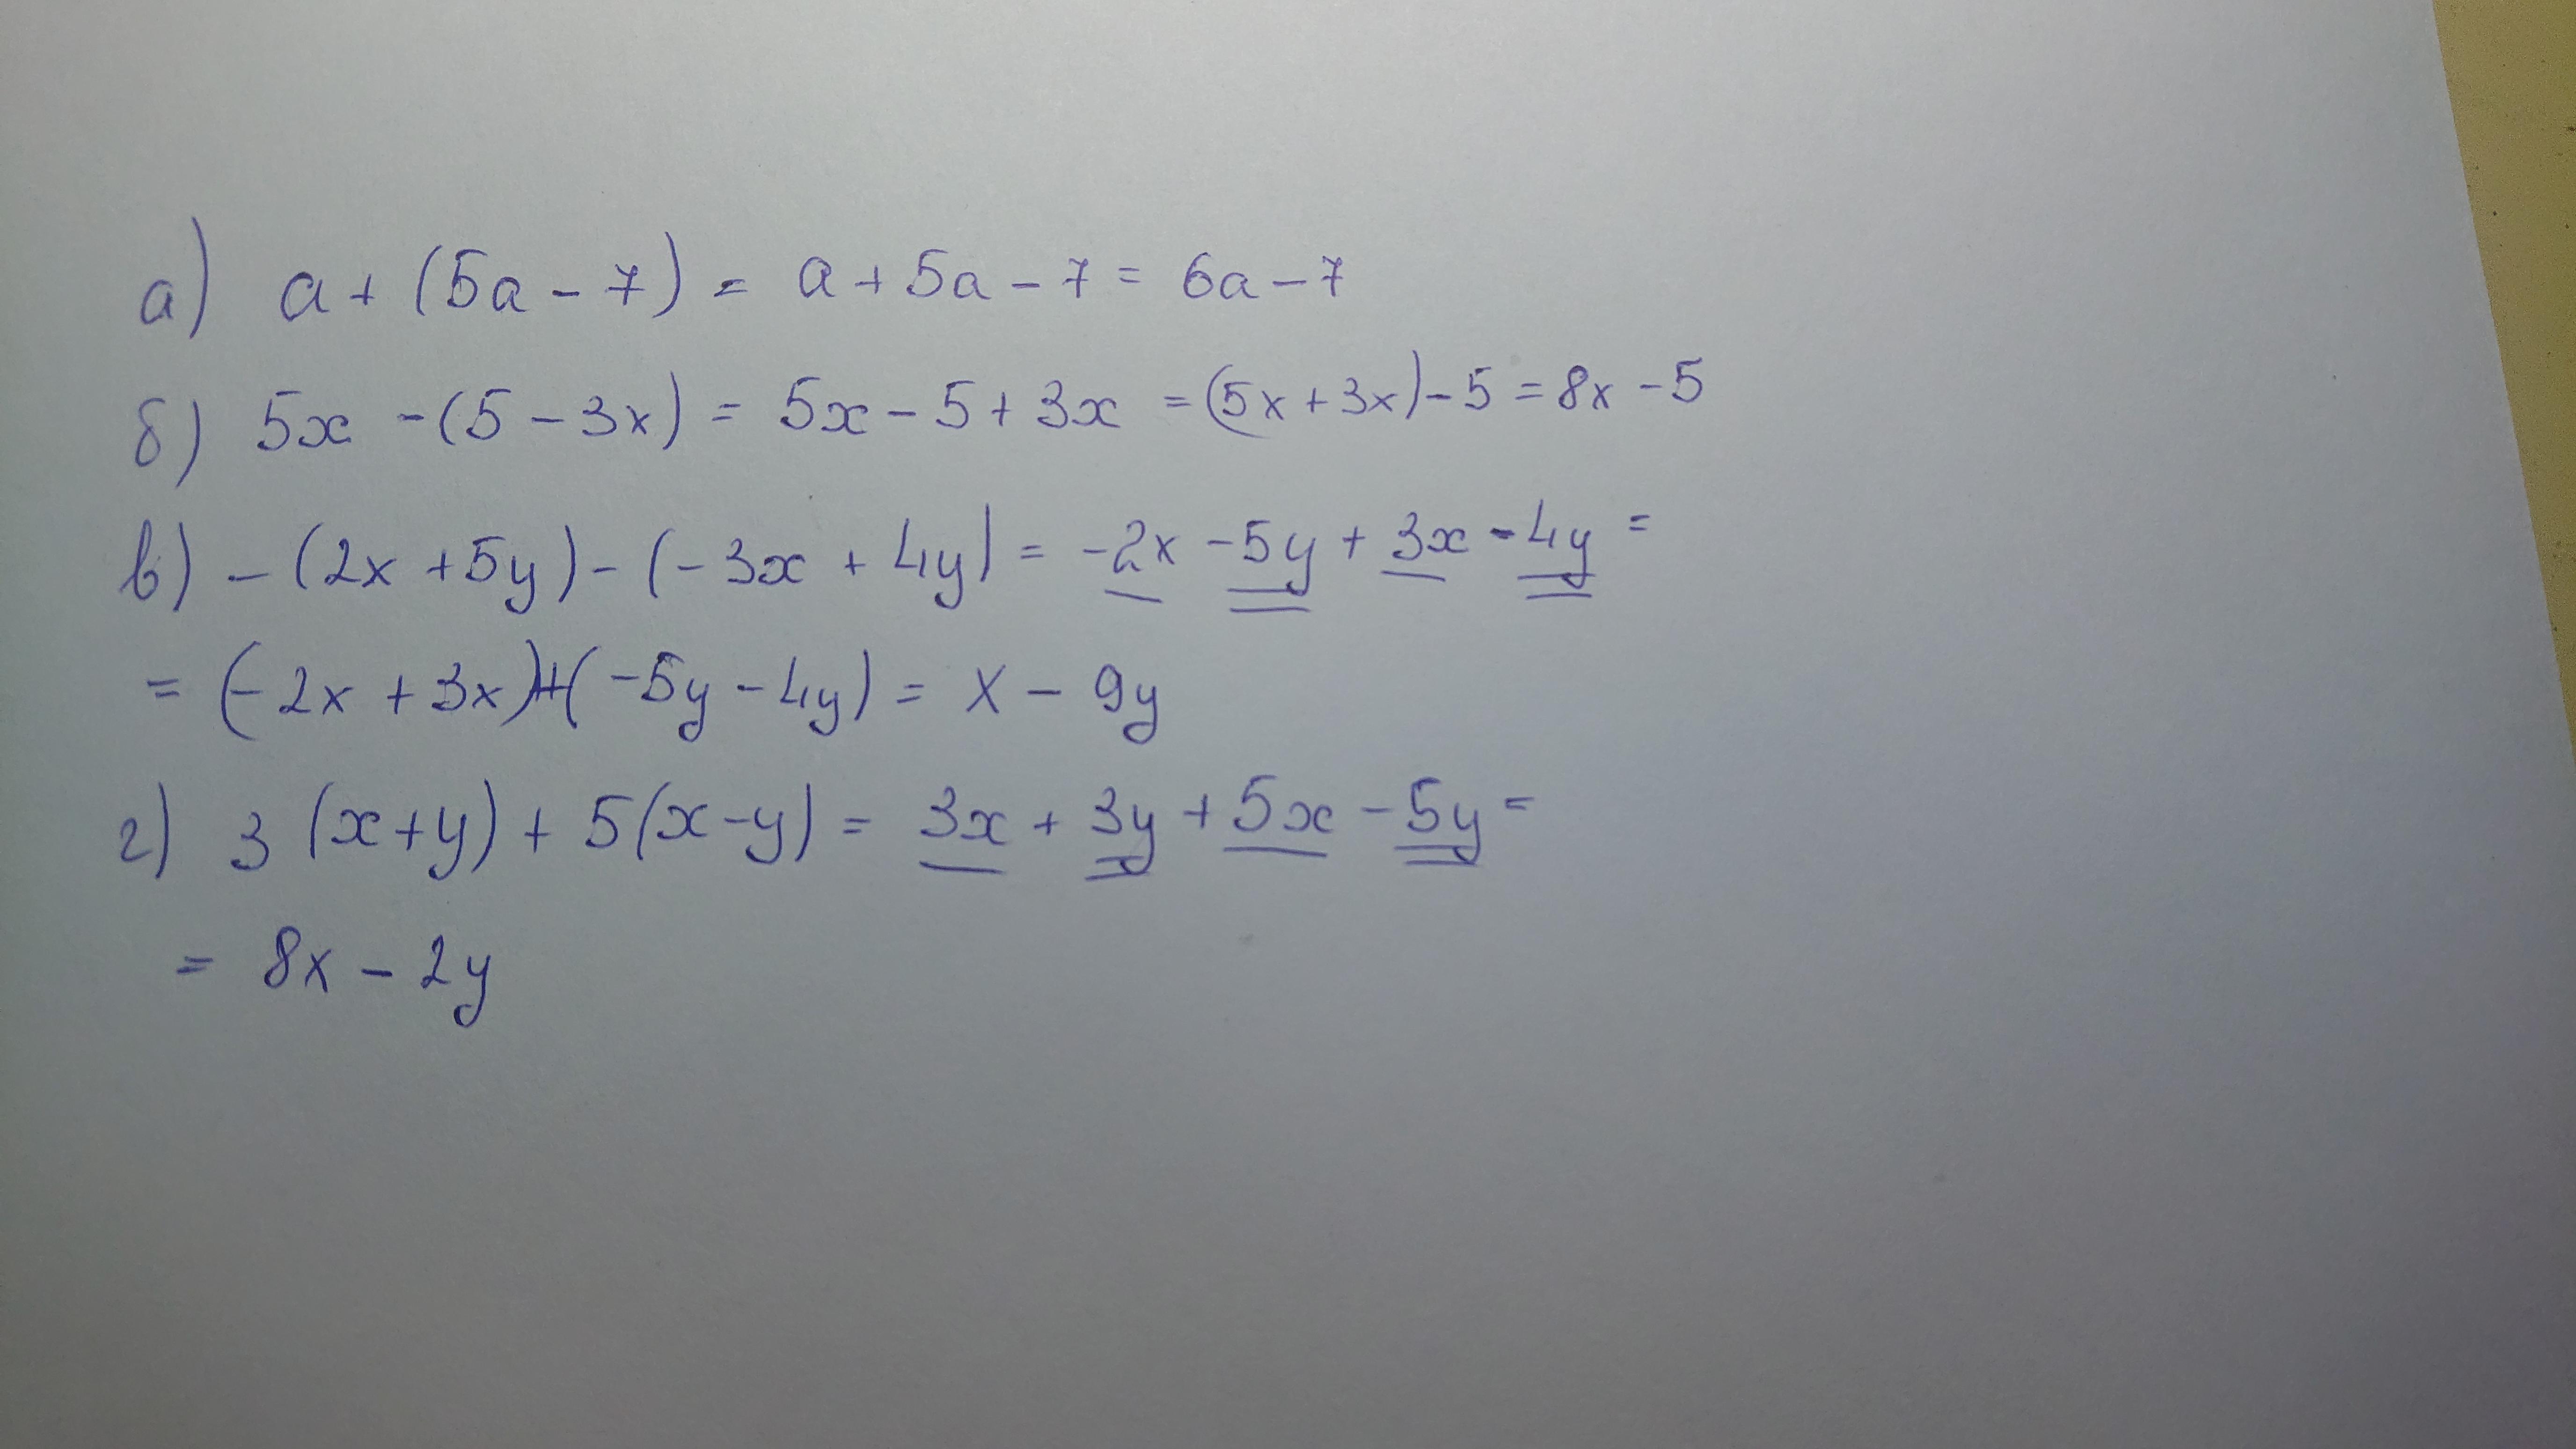 а) a + (5a - 7) = a + 5a - 7 = 6a - 7
б) 5x - (5 - 3x) = 5x - 5 + 3x = (5x + 3x) - 5 = 8x - 5
в) - (2x + 5y) - (- 3x + 4y) = - 2x - 5y + 3x - 4y =
= (- 2x + 3x) + (- 5y - 4y) = x - 9y
г) 3 (x + y) + 5(x - y) = 3x + 3y + 5x - 5y =
= 8x - 2y